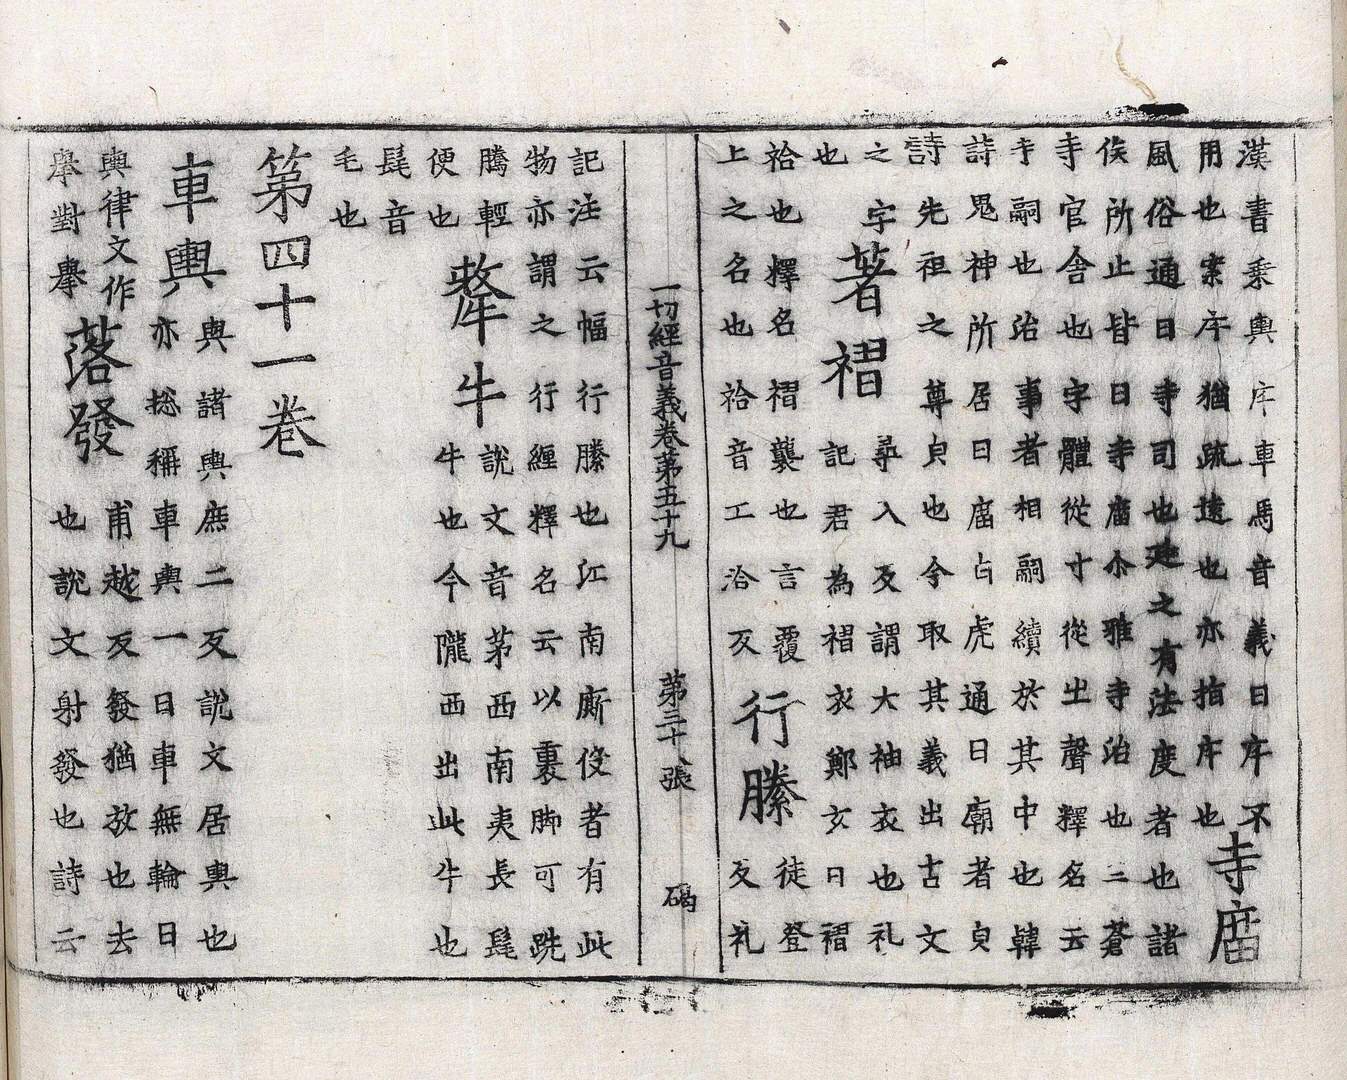 漢書乗輿㡿車馬音義曰㡿不
用也案㡿猶疏遠也亦指㡿也
寺廟
風俗通曰寺司也廷之有法度者也諸
侯所止皆曰寺廟尒雅寺治也三蒼
寺官舍也字體從寸從㞢聲釋名云
寺嗣也治事者相嗣續於其中也韓
詩鬼神所居曰廟白虎通曰廟者皃
詩先祖之尊皃也今取其義出古文
之字
也
著褶
尋入反謂大袖衣也礼
記君為褶衣鄭玄曰褶
袷也釋名褶襲也言覆
上之名也袷音工洽反
行縢
徒登
反礼
一切經音義卷苐五十九 苐三十八張 碣
記注云幅行縢也江南廝伇者有此
物亦謂之行纏釋名云以裹脚可跳
騰輕
便也
犛牛
說文音茅西南夷長髦
牛也今隴西出此牛也
髦音
毛也
第四十一卷
車輿
輿諸輿庶二反說文居輿也
亦捴稱車輿一曰車無輪曰
輿律文作
舉對舉
落發
甫越反發猶放也去
也說文射發也詩云